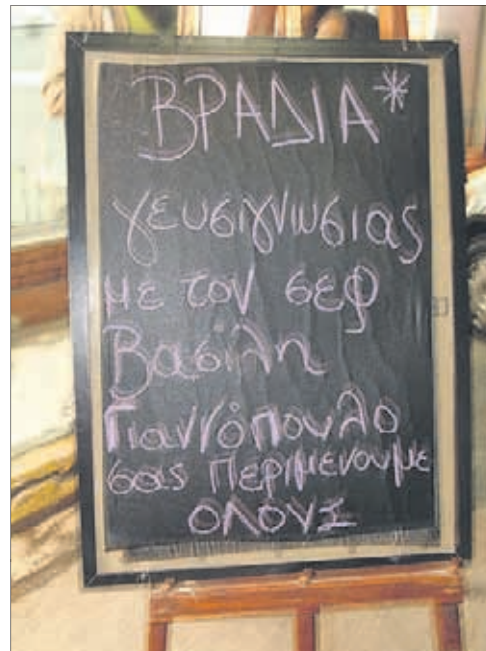 ΒΡΑΔΙΑ*
γευσιγνωσιας
με τον σεφ
Βασίλη
Γιαννόπουλο
σας περιμενουμε
ΟΛΟΥΣ